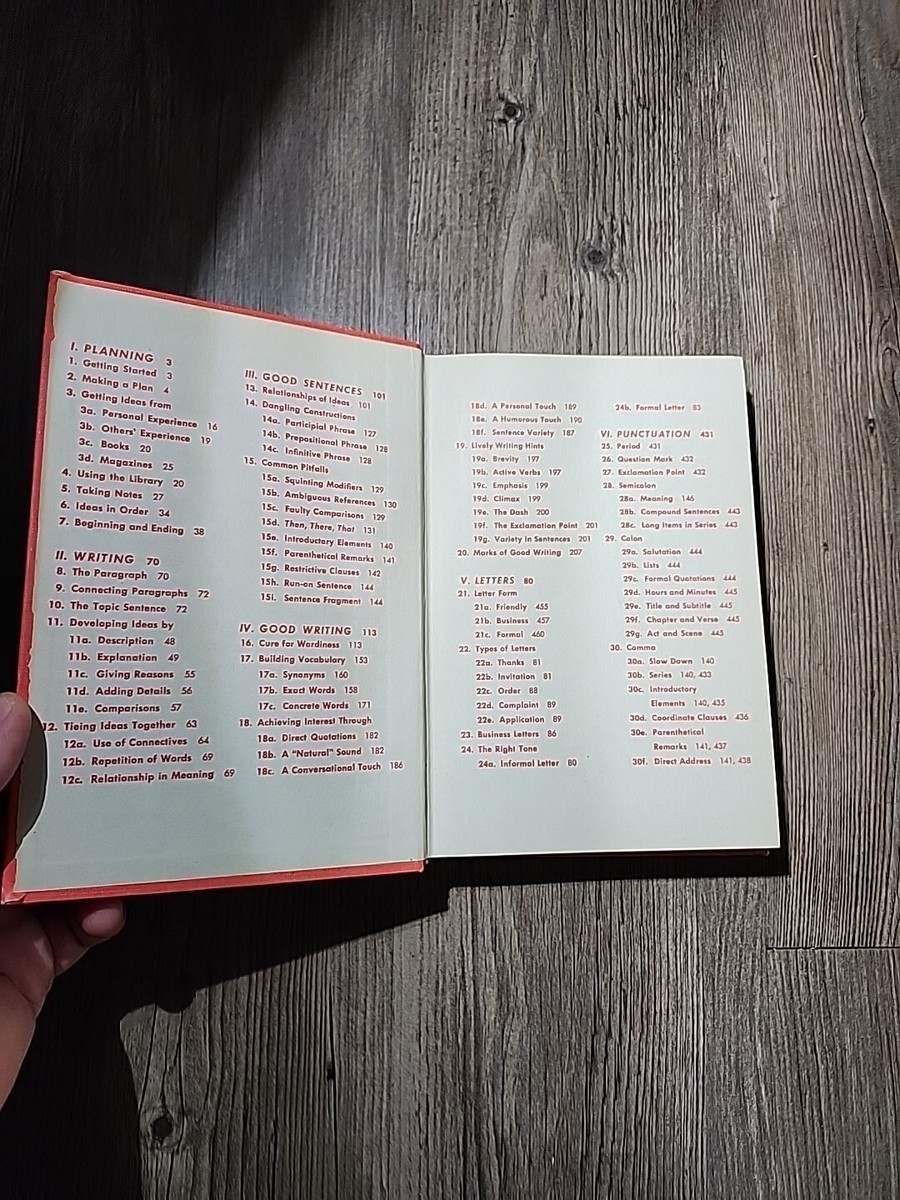 I. PLANNING 3
1. Getting Started 3
2. Making a Plan 4
3. Getting Ideas from
3a. Personal Experience 16
3b. Others' Experience 19
3c. Books 20
3d. Magazines 25
4. Using the Library 20
5. Taking Notes 27
6. Ideas in Order 34
7. Beginning and Ending 38
II. WRITING 70
8. The Paragraph 70
9. Connecting Paragraphs 72
10. The Topic Sentence 72
11. Developing Ideas by
11a. Description 48
11b. Explanation 49
11c. Giving Reasons 55
11d. Adding Details 56
11e. Comparisons 57
12. Tieing Ideas Together 63
12a. Use of Connectives 64
12b. Repetition of Words 69
12c. Relationship in Meaning 69
III. GOOD SENTENCES 101
13. Relationships of Ideas 101
14. Dangling Constructions
14a. Participial Phrase 127
14b. Prepositional Phrase 128
14c. Infinitive Phrase 128
15. Common Pitfalls
15a. Squinting Modifiers 129
15b. Ambiguous References 130
15c. Faulty Comparisons 129
15d. Then, There, That 131
15e. Introductory Elements 140
15f. Parenthetical Remarks 141
15g. Restrictive Clauses 142
15h. Run-on Sentence 144
15i. Sentence Fragment 144
IV. GOOD WRITING 113
16. Cure for Wordiness 113
17. Building Vocabulary 153
17a. Synonyms 160
17b. Exact Words 158
17c. Concrete Words 171
18. Achieving Interest Through
18a. Direct Quotations 182
18b. A "Natural" Sound 182
18c. A Conversational Touch 186
18d. A Personal Touch 189
18e. A Humorous Touch 190
18f. Sentence Variety 187
19. Lively Writing Hints
19a. Brevity 197
19b. Active Verbs 197
19c. Emphasis 199
19d. Climax 199
19e. The Dash 200
19f. The Exclamation Point 201
19g. Variety in Sentences 201
20. Marks of Good Writing 207
V. LETTERS 80
21. Letter Form
21a. Friendly 455
21b. Business 457
21c. Formal 460
22. Types of Letters
22a. Thanks 81
22b. Invitation 81
22c. Order 88
22d. Complaint 89
22e. Application 89
23. Business Letters 86
24. The Right Tone
24a. Informal Letter 80
24b. Formal Letter 83
VI. PUNCTUATION 431
25. Period 431
26. Question Mark 432
27. Exclamation Point 432
28. Semicolon
28a. Meaning 146
28b. Compound Sentences 443
28c. Long Items in Series 443
29. Colon
29a. Salutation 444
29b. Lists 444
29c. Formal Quotations 444
29d. Hours and Minutes 445
29e. Title and Subtitle 445
29f. Chapter and Verse 445
29g. Act and Scene 445
30. Comma
30a. Slow Down 140
30b. Series 140, 433
30c. Introductory
Elements 140, 435
30d. Coordinate Clauses 436
30e. Parenthetical
Remarks 141, 437
30f. Direct Address 141, 438